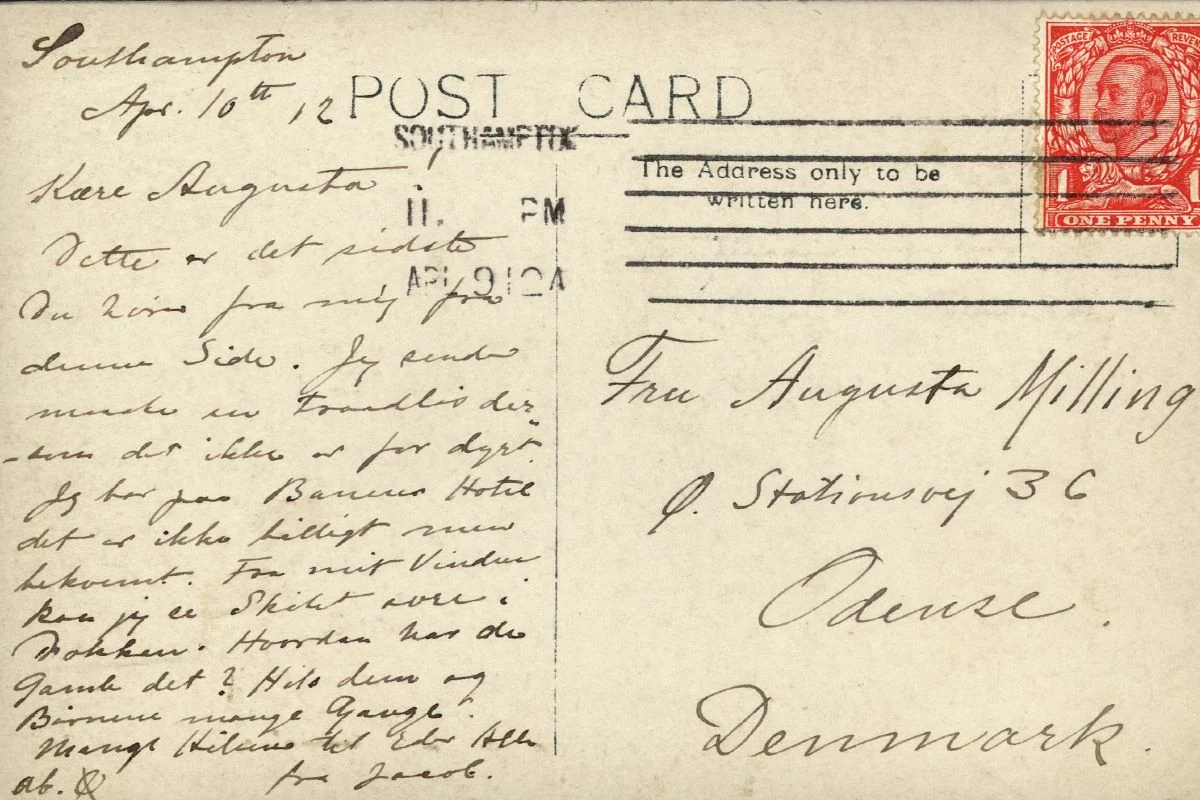 Southampton
Apr. 10th 12
POST CARD
SOUTHAMPTON
The Address only to be
written here.
11. PM
AP 9 12 A
POSTAGE REVEN
1 1
ONE PENNY
Kære Augusta!
Dette er det sidste
Du hører fra mig fra
denne Side. Jeg sender
maaske en Traadløs der-
-som det ikke er for dyrt.
Jeg bor paa Hotel
det er ikke billigt men
bekvemt. Fra mit Vindue
kan jeg se Skibet ovre i
Dokken. Hvordan har de
Gamle det? Hils dem og
Børnene mange Gange.
Mange Hilsner til Eder Alle
fra Jacob.
Fru Augusta Milling
Ø. Stationsvej 36
Odense.
Denmark.